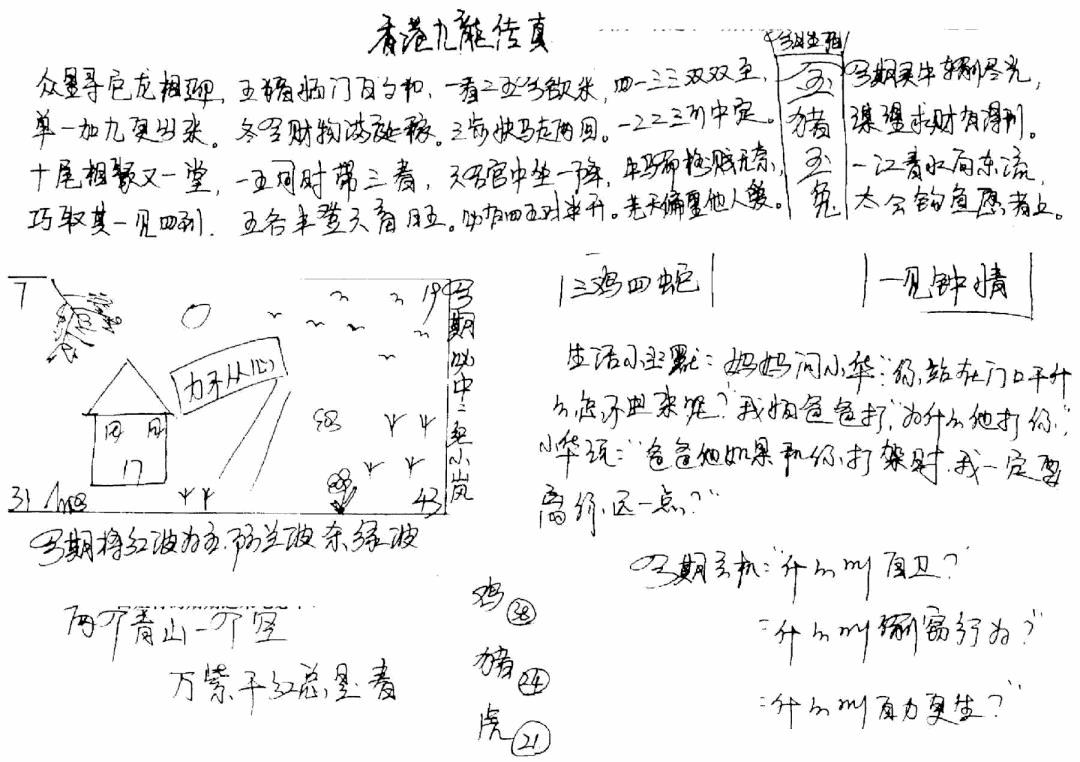 香港九龍传真
今期生肖
玉
猪
玉
兔
众星寻它龙相迎,五猪临门百勺和,一看二五今欲来,四一三三双双至,
单一加九更出来。冬令财物满庭稼。三步快马走两回。一二二三加中定。
十尾相聚又一堂,一五同时带三春,天罡官中坐一降,
巧取其一见四列.五谷丰登天有日五。必有四五对半开。先天偏里他人爱。
今期买牛输尽光,
谋望求财有得利。
一江春水向东流,
太公钓鱼愿者上。
三鸡四蛇
一见钟情
7
19
力不从心
17
31
43
今期必中二组小岚
今期将红波为主.防兰波杀绿波
生活小幽默:妈妈问小华:“你站在门口干什
么,怎不出来呢?”我怕爸爸打,“为什么他打你,”
小华说:“爸爸他如果和你打架时,我一定要
离你远一点?”
今期玄机:“什么叫自卫?”
:“什么叫剽窃行为?”
:“什么叫自力更生?”
两个青山一个空
万紫千红总是春
鸡 38
猪 24
虎 21